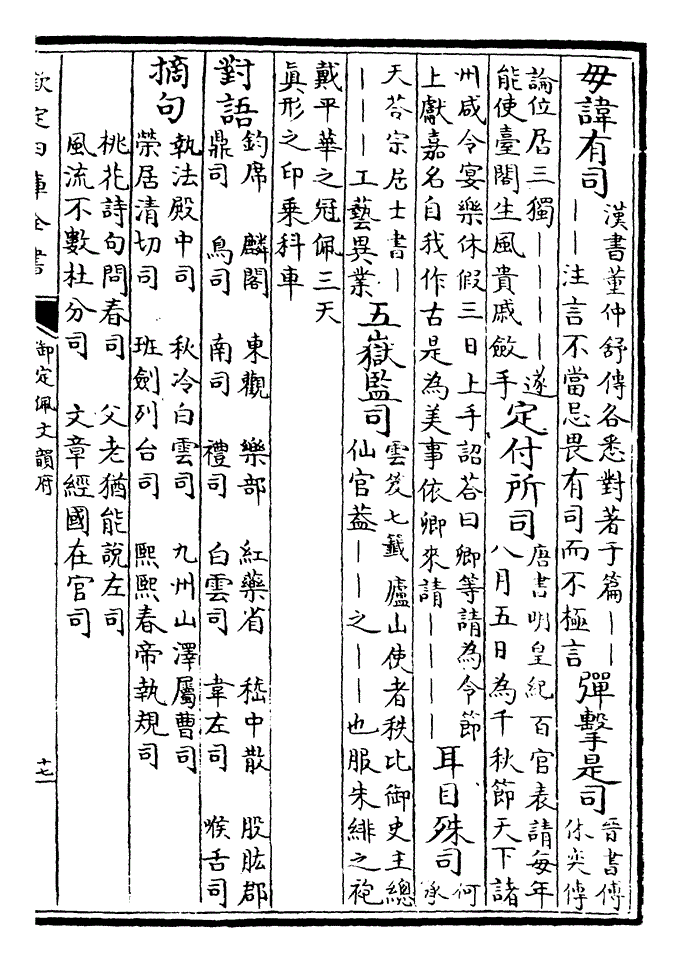 毋諱有司
漢書董仲舒傳各悉對著于篇――
――注言不當忌畏有司而不極言
彈擊是司
晉書傅
休奕傳
論位居三獨――――遂
能使臺閣生風貴戚斂手
定付所司
唐書明皇紀百官表請每年
八月五日為千秋節天下諸
州咸令宴樂休假三日上手詔荅曰卿等請為令節
上獻嘉名自我作古是為美事依卿來請――――
耳目殊司
何
承
天荅宗居士書―
―――工藝異業
五嶽監司
雲笈七籤廬山使者秩比御史主總
仙官葢――之――也服朱緋之袍
戴平華之冠佩三天
眞形之印乗科車
對語
鈞席 麟閣 東觀 樂部 紅藥省 嵇中散 股肱郡
鼎司 鳥司 南司 禮司 白雲司 韋左司 喉舌司
摘句
執法殿中司 秋冷白雲司 九州山澤屬曹司
榮居清切司 班劍列台司 熙熙春帝執規司
桃花詩句問春司 父老猶能說左司
風流不數杜分司 文章經國在官司
欽定四庫全書
御定佩文韻府
十七